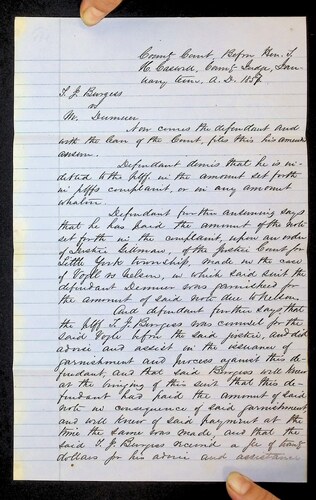 County Court, Before Hon. T.
H. Caswell, County Judge, Jan-
uary Term. A. D. 1857.
T. J. Burgess
vs
M.
Now comes the defendant and
with the leave of the Court, files this his amended
answer.
Defendant denies that he is in-
debted to the plff. in the amount set forth
in plffs complaint, or in any amount
whatever.
Defendant further answering says
that he has paid the amount of the note
set forth in the complaint, upon an order
of Justice of the Justice Court for
Little York township, made in the case
of vs Nelson, in which said suit the
defendant was garnished for
the amount of said note due to Nelson.
And defendant further says that
the plff T. J. Burgess was counsel for the
said before the said justice, and did
advise and assist in the issuance of
garnishment and process against this de-
fendant, and that said Burgess well knew
at the bringing of this suit that this de-
fendant had paid the amount of said
note in consequence of said garnishment,
and well knew of said payment at the
time the same was made, and that the
said T. J. Burgess received a fee of
dollars for his advice and assistance